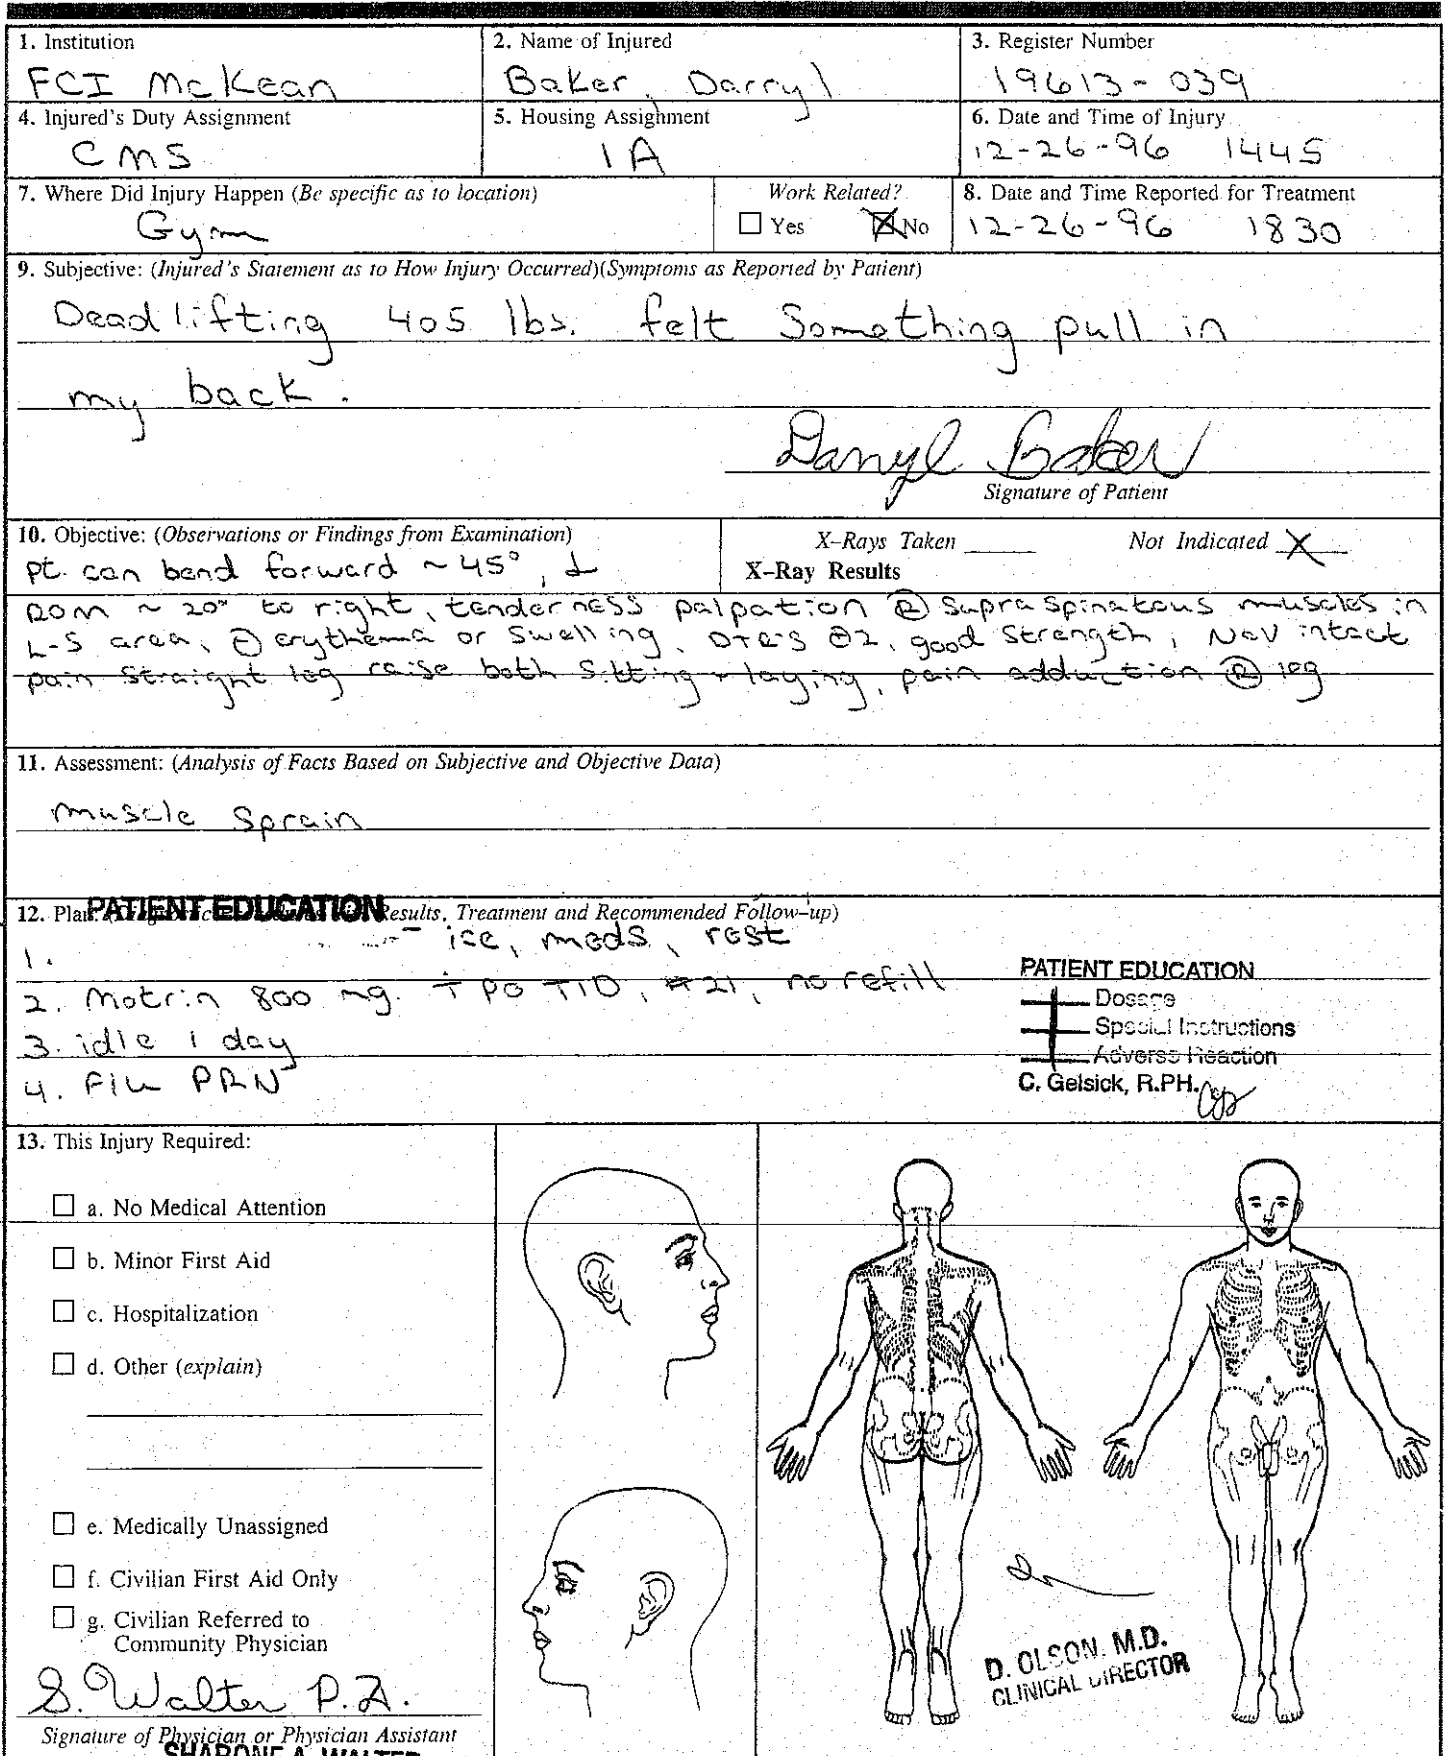 1. Institution
FCI McKean
2. Name of Injured
Baker, Darryl
3. Register Number
19613-039
4. Injured's Duty Assignment
CMS
5. Housing Assignment
1A
6. Date and Time of Injury
12-26-96 1445
7. Where Did Injury Happen (Be specific as to location)
Gym
Work Related?
☐ Yes ☒ No
8. Date and Time Reported for Treatment
12-26-96 1830
9. Subjective: (Injured's Statement as to How Injury Occurred)(Symptoms as Reported by Patient)
Deadlifting 405 lbs. felt Something pull in
my back.
Darryl Baker
Signature of Patient
10. Objective: (Observations or Findings from Examination)
pt. can bend forward ~ 45°, ↓
X-Rays Taken
Not Indicated X
X-Ray Results
ROM ~ 20° to right, tenderness palpation Ⓡ Supra Spinatous muscles in
L-S area, ⊖ erythema or Swelling, DTR'S ⊕2, good Strength, N&V intact
pain Straight leg raise both Sitting + laying, pain adduction Ⓡ leg
11. Assessment: (Analysis of Facts Based on Subjective and Objective Data)
muscle Sprain
12. Plan:
PATIENT EDUCATION
Results, Treatment and Recommended Follow-up)
1. - ice, meds, rest
2. Motrin 800 mg. T PO TID, #21, no refill
3. idle 1 day
4. F/U PRN
PATIENT EDUCATION
Dosage
Special Instructions
Adverse Reaction
C. Gelsick, R.PH.
13. This Injury Required:
☐ a. No Medical Attention
☐ b. Minor First Aid
☐ c. Hospitalization
☐ d. Other (explain)
☐ e. Medically Unassigned
☐ f. Civilian First Aid Only
☐ g. Civilian Referred to
Community Physician
S. Walter P.A.
Signature of Physician or Physician Assistant
SHARONE A. WALTER
D. OLSON, M.D.
CLINICAL DIRECTOR